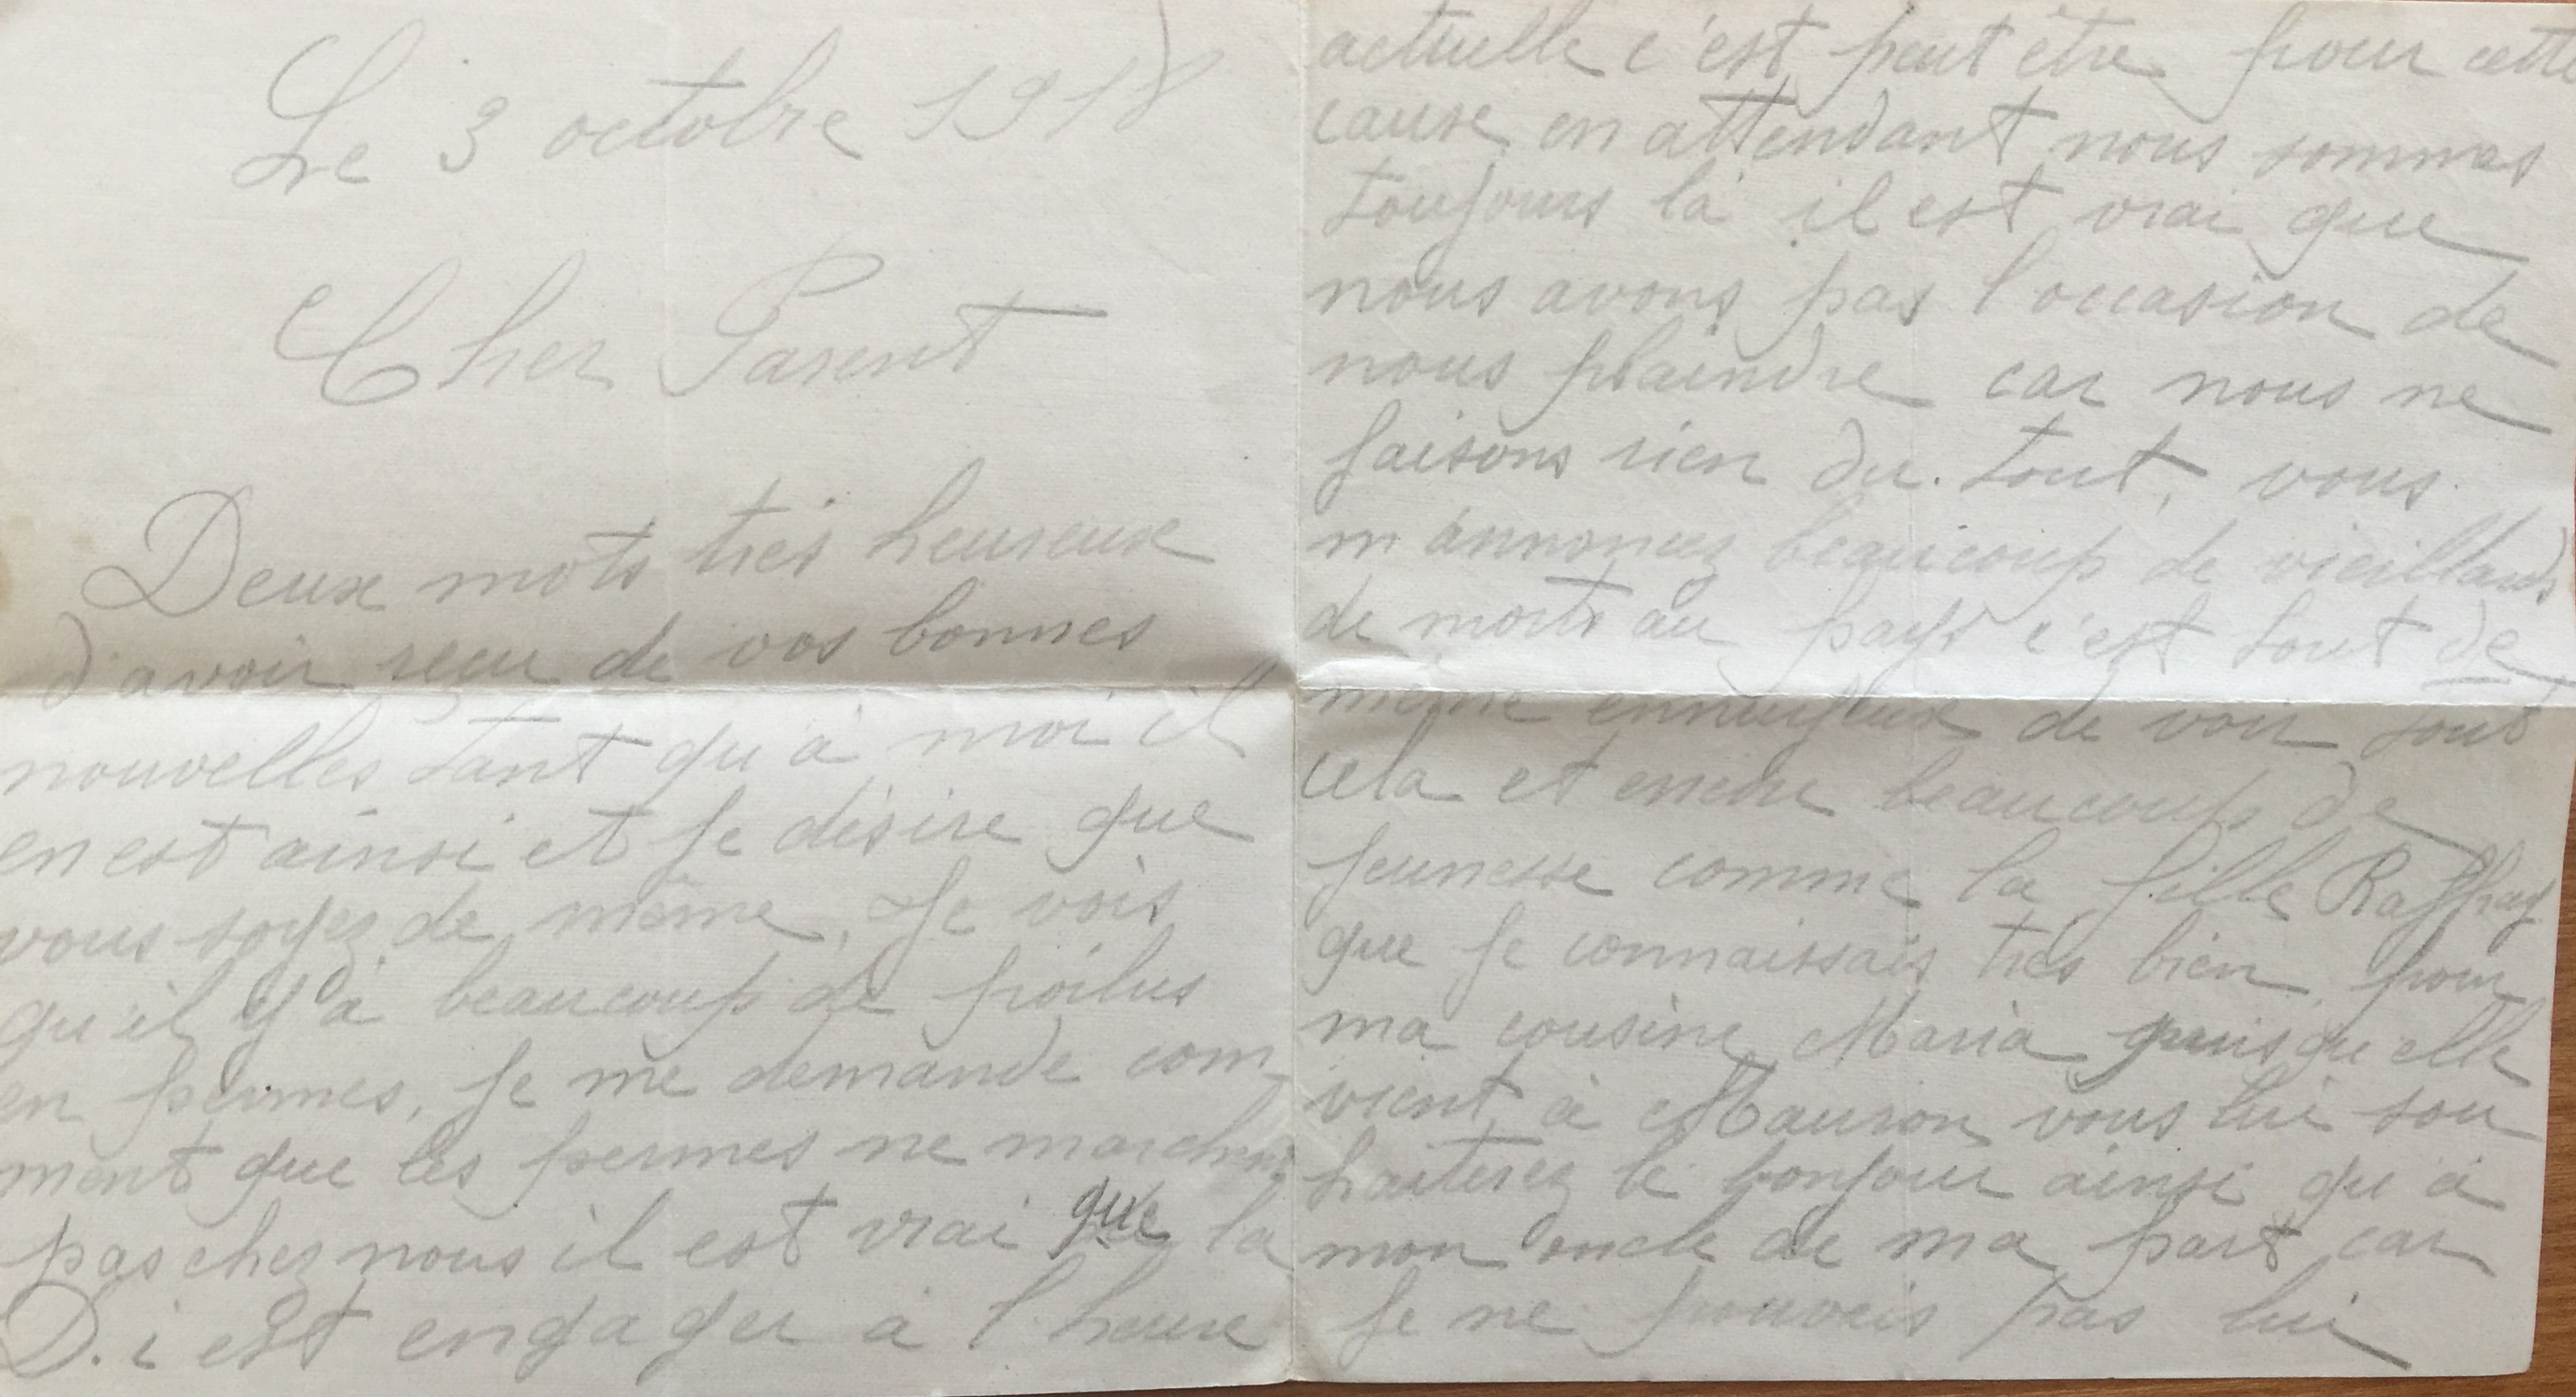 Le 3 octobre 1918
Cher Parent
Deux mots très heureuse
d'avoir reçu de vos bonnes
nouvelles tant qu'à moi il
en est ainsi et je désire que
vous soyez de même, Je vois
qu'il y à beaucoup de poilus
en permes, je me demande com
ment que les permes ne marchent
pas chez nous il est vrai que la
D.i est engager à l'heure
actuelle c'est peut être pour cette
cause en attendant nous sommes
toujours là il est vrai que
nous avons pas l'occasion de
nous plaindre car nous ne
faisons rien du tout, vous
m'annoncez beaucoup de vieillards
de morts au pays c'est tout de
même ennuyeux de voir tout
cela et encore beaucoup de
jeunesse comme la fille Raffray
que je connaissais très bien, pour
ma cousine Maria puisqu'elle
vient à Mauron vous lui sou
haiterez le bonjour ainsi qu'à
mon oncle de ma part car
je ne pouvais pas lui